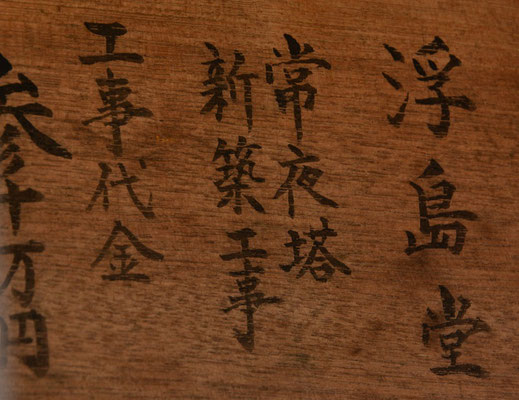 浮島堂
常夜塔
新築工事
工事代金
参十万円